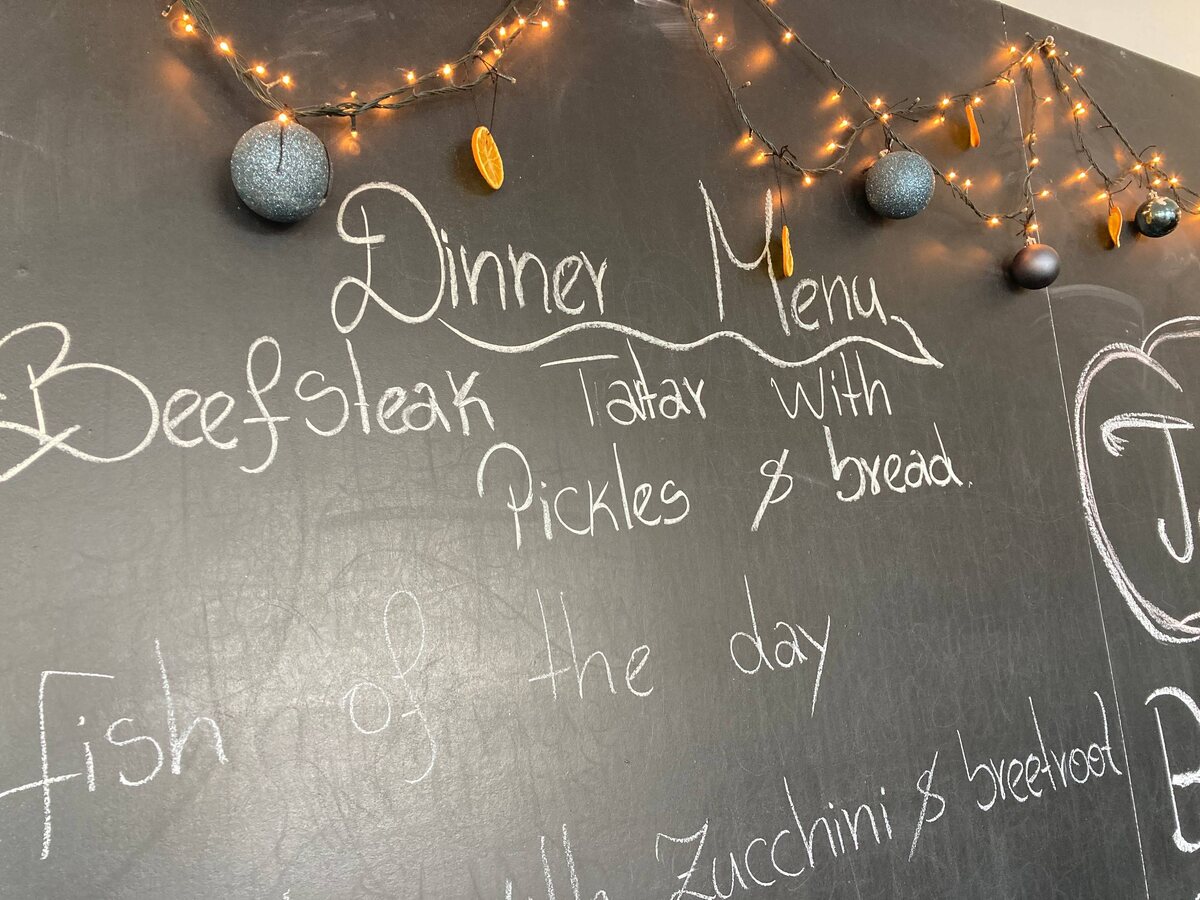 Dinner Menu
Beefsteak Tartar with
Pickles & bread.
Fish of the day
Zucchini & breetroot